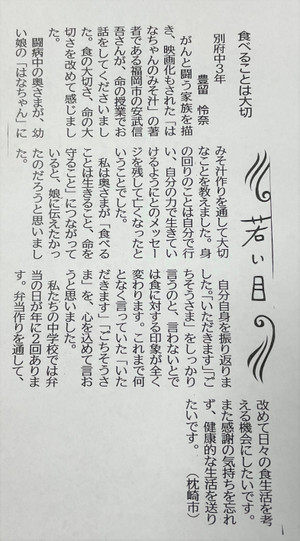 食べることは大切
別府中3年
豊留 怜奈
がんと闘う家族を描
き、映画化もされた「は
なちゃんのみそ汁」の著
者である福岡市の安武信
吾さんが、命の授業でお
話をしてくださいまし
た。食の大切さ、命の大
切さを改めて感じまし
た。
闘病中の奥さまが、幼
い娘の「はなちゃん」に
みそ汁作りを通して大切
なことを教えました。身
の回りのことは自分で行
い、自分の力で生きてい
けるようにとのメッセー
ジを残して亡くなったと
いうことでした。
私は奥さまが「食べる
ことは生きること、命を
守ること」につながって
いると、娘に伝えたかっ
たのだろうと思いまし
た。
若い目
自分自身を振り返りま
した。「いただきます」「ご
ちそうさま」をしっかり
言うのと、言わないとで
は食に対する印象が全く
変わります。これまで何
となく言っていた「いた
だきます」「ごちそうさ
ま」を、心を込めて言お
うと思いました。
私たちの中学校では弁
当の日が年に2回ありま
す。弁当作りを通して、
改めて日々の食生活を考
える機会にしたいです。
また感謝の気持ちを忘れ
ず、健康的な生活を送り
たいです。
(枕崎市)